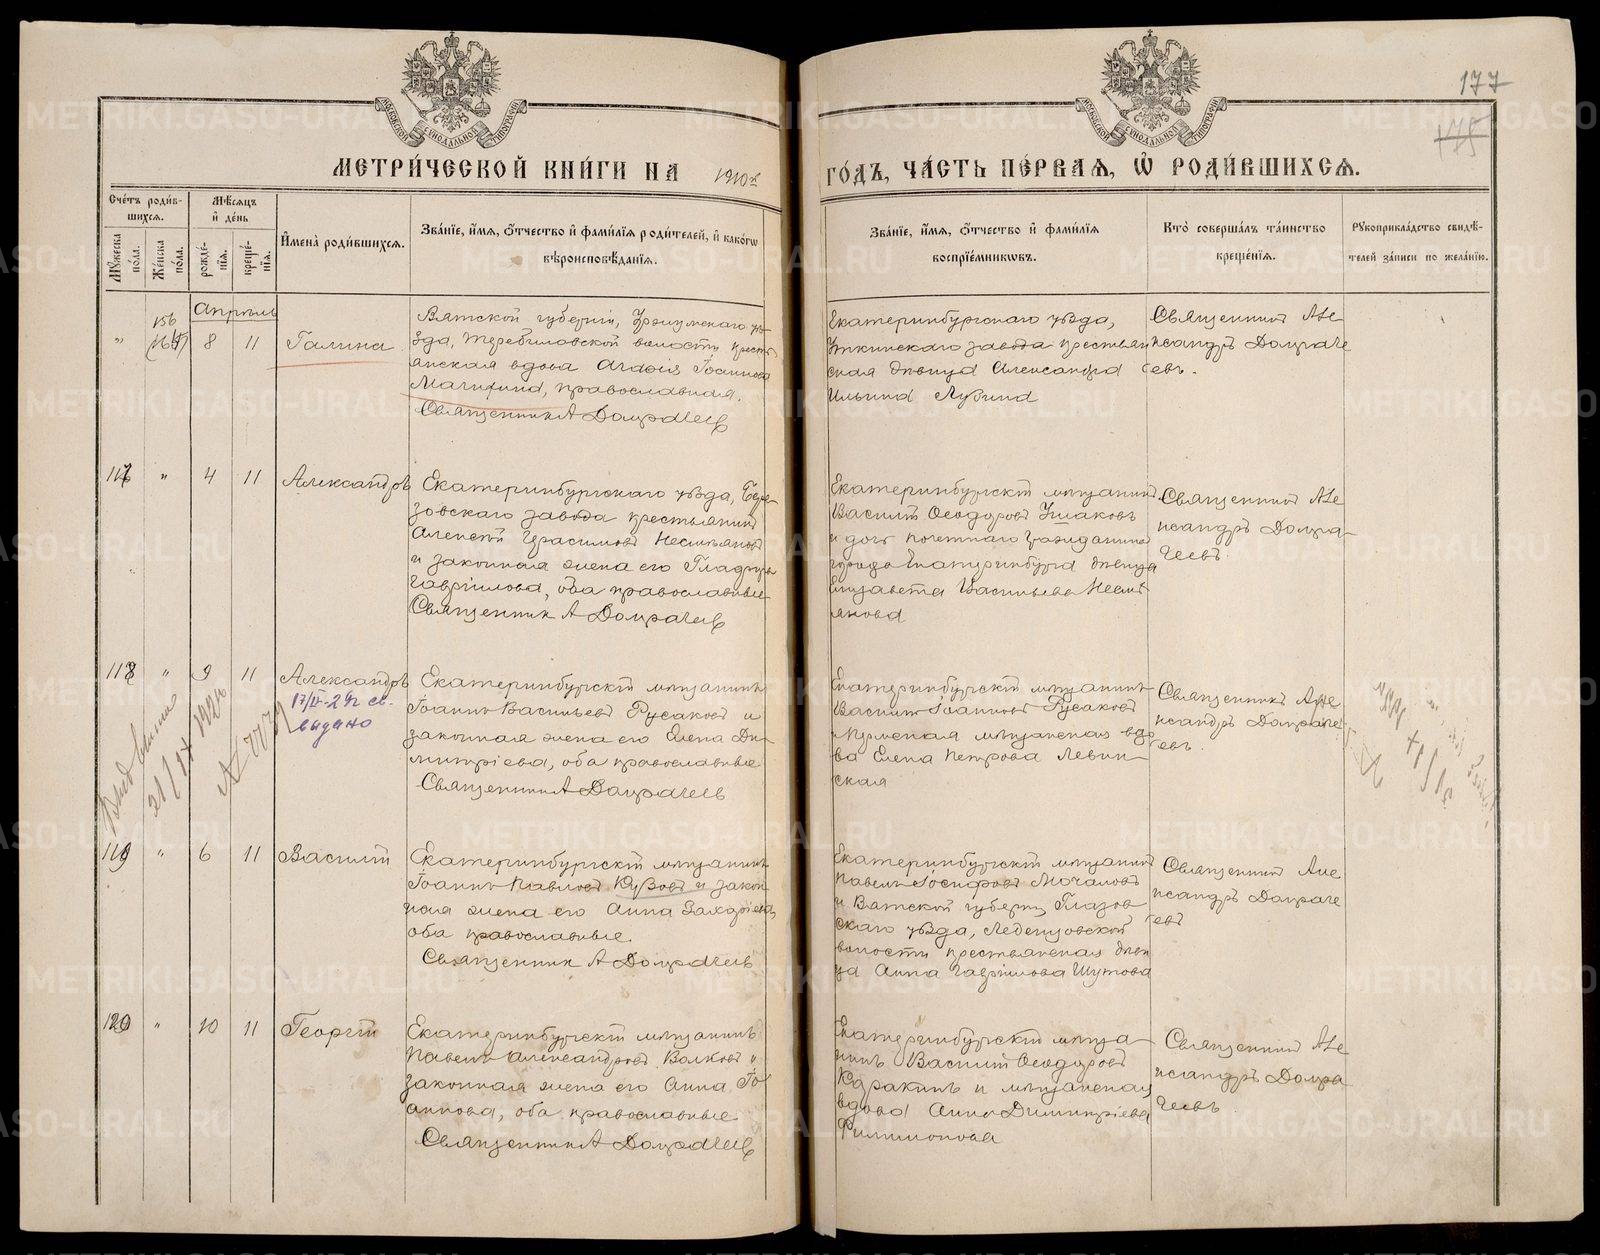 177
175
МЕТРИ́ЧЕСКОЙ КНИ́ГИ НА 1910 ГО́ДЪ, ЧА́СТЬ ПЕ́РВАЯ, Ѿ РОДИ́ВШИХСЯ.
Сче́тъ роди́вшихся.
Му́жеска по́ла.
Же́нска по́ла.
Мѣ́сяцъ и҆ де́нь
рожде́нїя.
креще́нїя.
И҆мена̀ роди́вшихся.
Зва́нїе, и҆́мя, ѻ҆́тчество и҆ фами́лїя роди́телей, и҆ како́гѡ
вѣроисповѣ́данїя.
Зва́нїе, и҆́мя, ѻ҆́тчество и҆ фами́лїя
воспрїе́мникѡвъ.
Кто̀ соверша́лъ та́инство
креще́нїя.
Рꙋкоприкла́дство свидѣ́телей за́писи по жела́нїю.
Апрѣль
" 156 8 11 Галина
Вятской губерніи, Уржумскаго уѣ-
зда, Теребиловской волости крестья-
янская вдова Іоаннова
православная.
Священник А Домрачев
Екатеринбургскаго уѣзда,
Уткинскаго завода крестьян
ская дѣвица Александра
Ильина
Священник Але
ксандръ Домраче
евъ.
117 " 4 11 Александръ
Екатеринбургскаго уѣзда, Бере-
зовскаго завода крестьянинъ
Алексѣй Герасимовъ
и законная жена его Гладира
Гавріилова, оба православные
Священник А Домрачев
Екатеринбургскій мѣщанинъ
Василій Ѳеодоровъ Ушаковъ
и дочь почетнаго гражданина
города Екатеринбурга дѣвица
Елизавета Васильева
Священник Але
ксандръ Домра-
чевъ.
118 " 9 11 Александръ
17/IV-24г св.
выдано
Екатеринбургскій мѣщанинъ
Іоаннъ Васильевъ Русаковъ и
законная жена его Елена Ди-
митріева, оба православные
Священник А Домрачевъ
Екатеринбургскій мѣщанинъ
Василій Іоанновъ Русаковъ
мѣщанская вдо
ва Елена Петрова Левин-
ская
Священникъ Але
ксандръ Домраче
евъ.
119 " 6 11 Василій
Екатеринбургскій мѣщанинъ
Іоаннъ Павловъ и закон
ная жена его Анна Захаріева,
оба православные.
Священник А Домрачевъ
Екатеринбургскій мѣщанинъ
Павелъ Іосифовъ Мочаловъ
и Вятской губерніи Глазов
скаго уѣзда,
волости крестьянская дѣви
ца Анна Гавріилова Шутова
Священник Але
ксандръ Домраче
евъ
120 " 10 11 Георгій
Екатеринбургскій мѣщанинъ
Павелъ Александровъ Волковъ и
законная жена его Анна Іо
аннова, оба православные
Священник А Домрачев
Екатеринбургскій мѣща-
нинъ Василій Ѳеодоровъ
Каракинъ и мѣщанская
вдова Анна Димитріева
Филимонова
Священник Але
ксандръ Домра
чевъ.